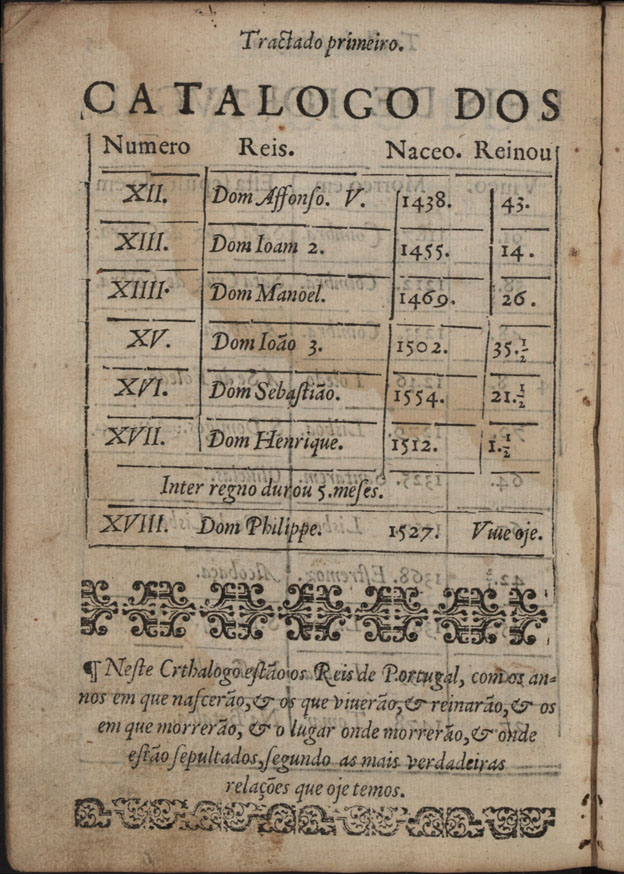 Tractado primeiro.
CATALOGO DOS
Numero Reis. Naceo. Reinou
XII. Dom Affonso. V. 1438. 43.
XIII. Dom Ioam 2. 1455. 14.
XIIII. Dom Manoel. 1469. 26.
XV. Dom Ioão 3. 1502. 35.½
XVI. Dom Sebaſtião. 1554. 21.½
XVII. Dom Henrique. 1512. 1.½
Inter regno durou 5. meſes.
XVIII. Dom Philippe. 1527. Viue oje.
¶ Neſte Crthalogo eſtão os Reis de Portugal, com os an-
nos em que naſcerão, & os que viuerão, & reinarão, & os
em que morrerão, & o lugar onde morrerão, & onde
eſtão ſepultados, ſegundo as mais verdadeiras
relações que oje temos.